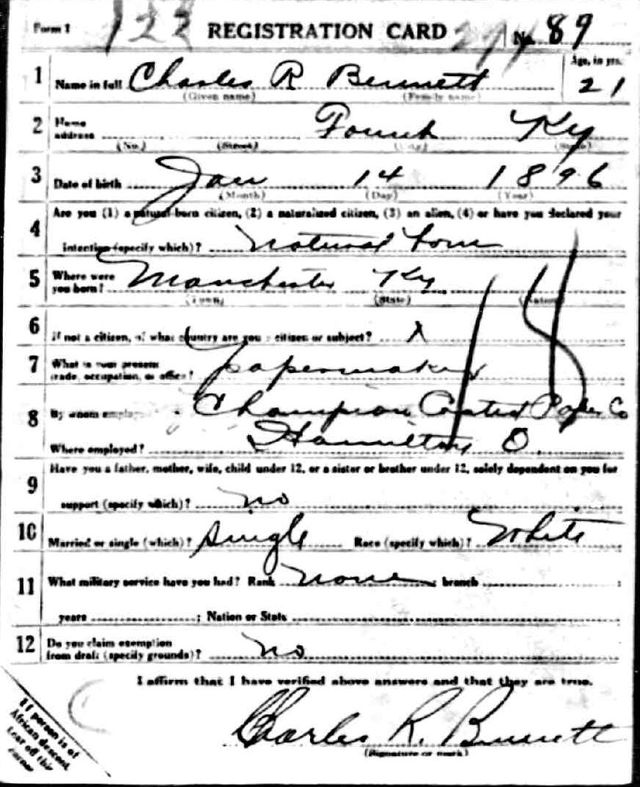 Form 1 122 REGISTRATION CARD No. 89
1 Name in full Charles R Bennett Age, in yrs. 21
(Given name) (Family name)
2 Home address Ky
(No.) (Street) (City) (State)
3 Date of birth Jan 14 1896
(Month) (Day) (Year)
4 Are you (1) a natural-born citizen, (2) a naturalized citizen, (3) an alien, (4) or have you declared your
intention (specify which)? natural born
5 Where were you born? Manchester Ky
(Town) (State) (Nation)
6 If not a citizen, of what country are you a citizen or subject? X
7 What is your present trade, occupation, or office? papermaker
18
8 By whom employed? Champion Coated Paper Co
Where employed? Hamilton O.
9 Have you a father, mother, wife, child under 12, or a sister or brother under 12, solely dependent on you for
support (specify which)? no
10 Married or single (which)? single Race (specify which)? White
11 What military service have you had? Rank none ; branch ;
years ; Nation or State
12 Do you claim exemption from draft (specify grounds)? no
I affirm that I have verified above answers and that they are true.
Charles R. Bennett
(Signature or mark)
If person is of
African descent,
tear off this
corner